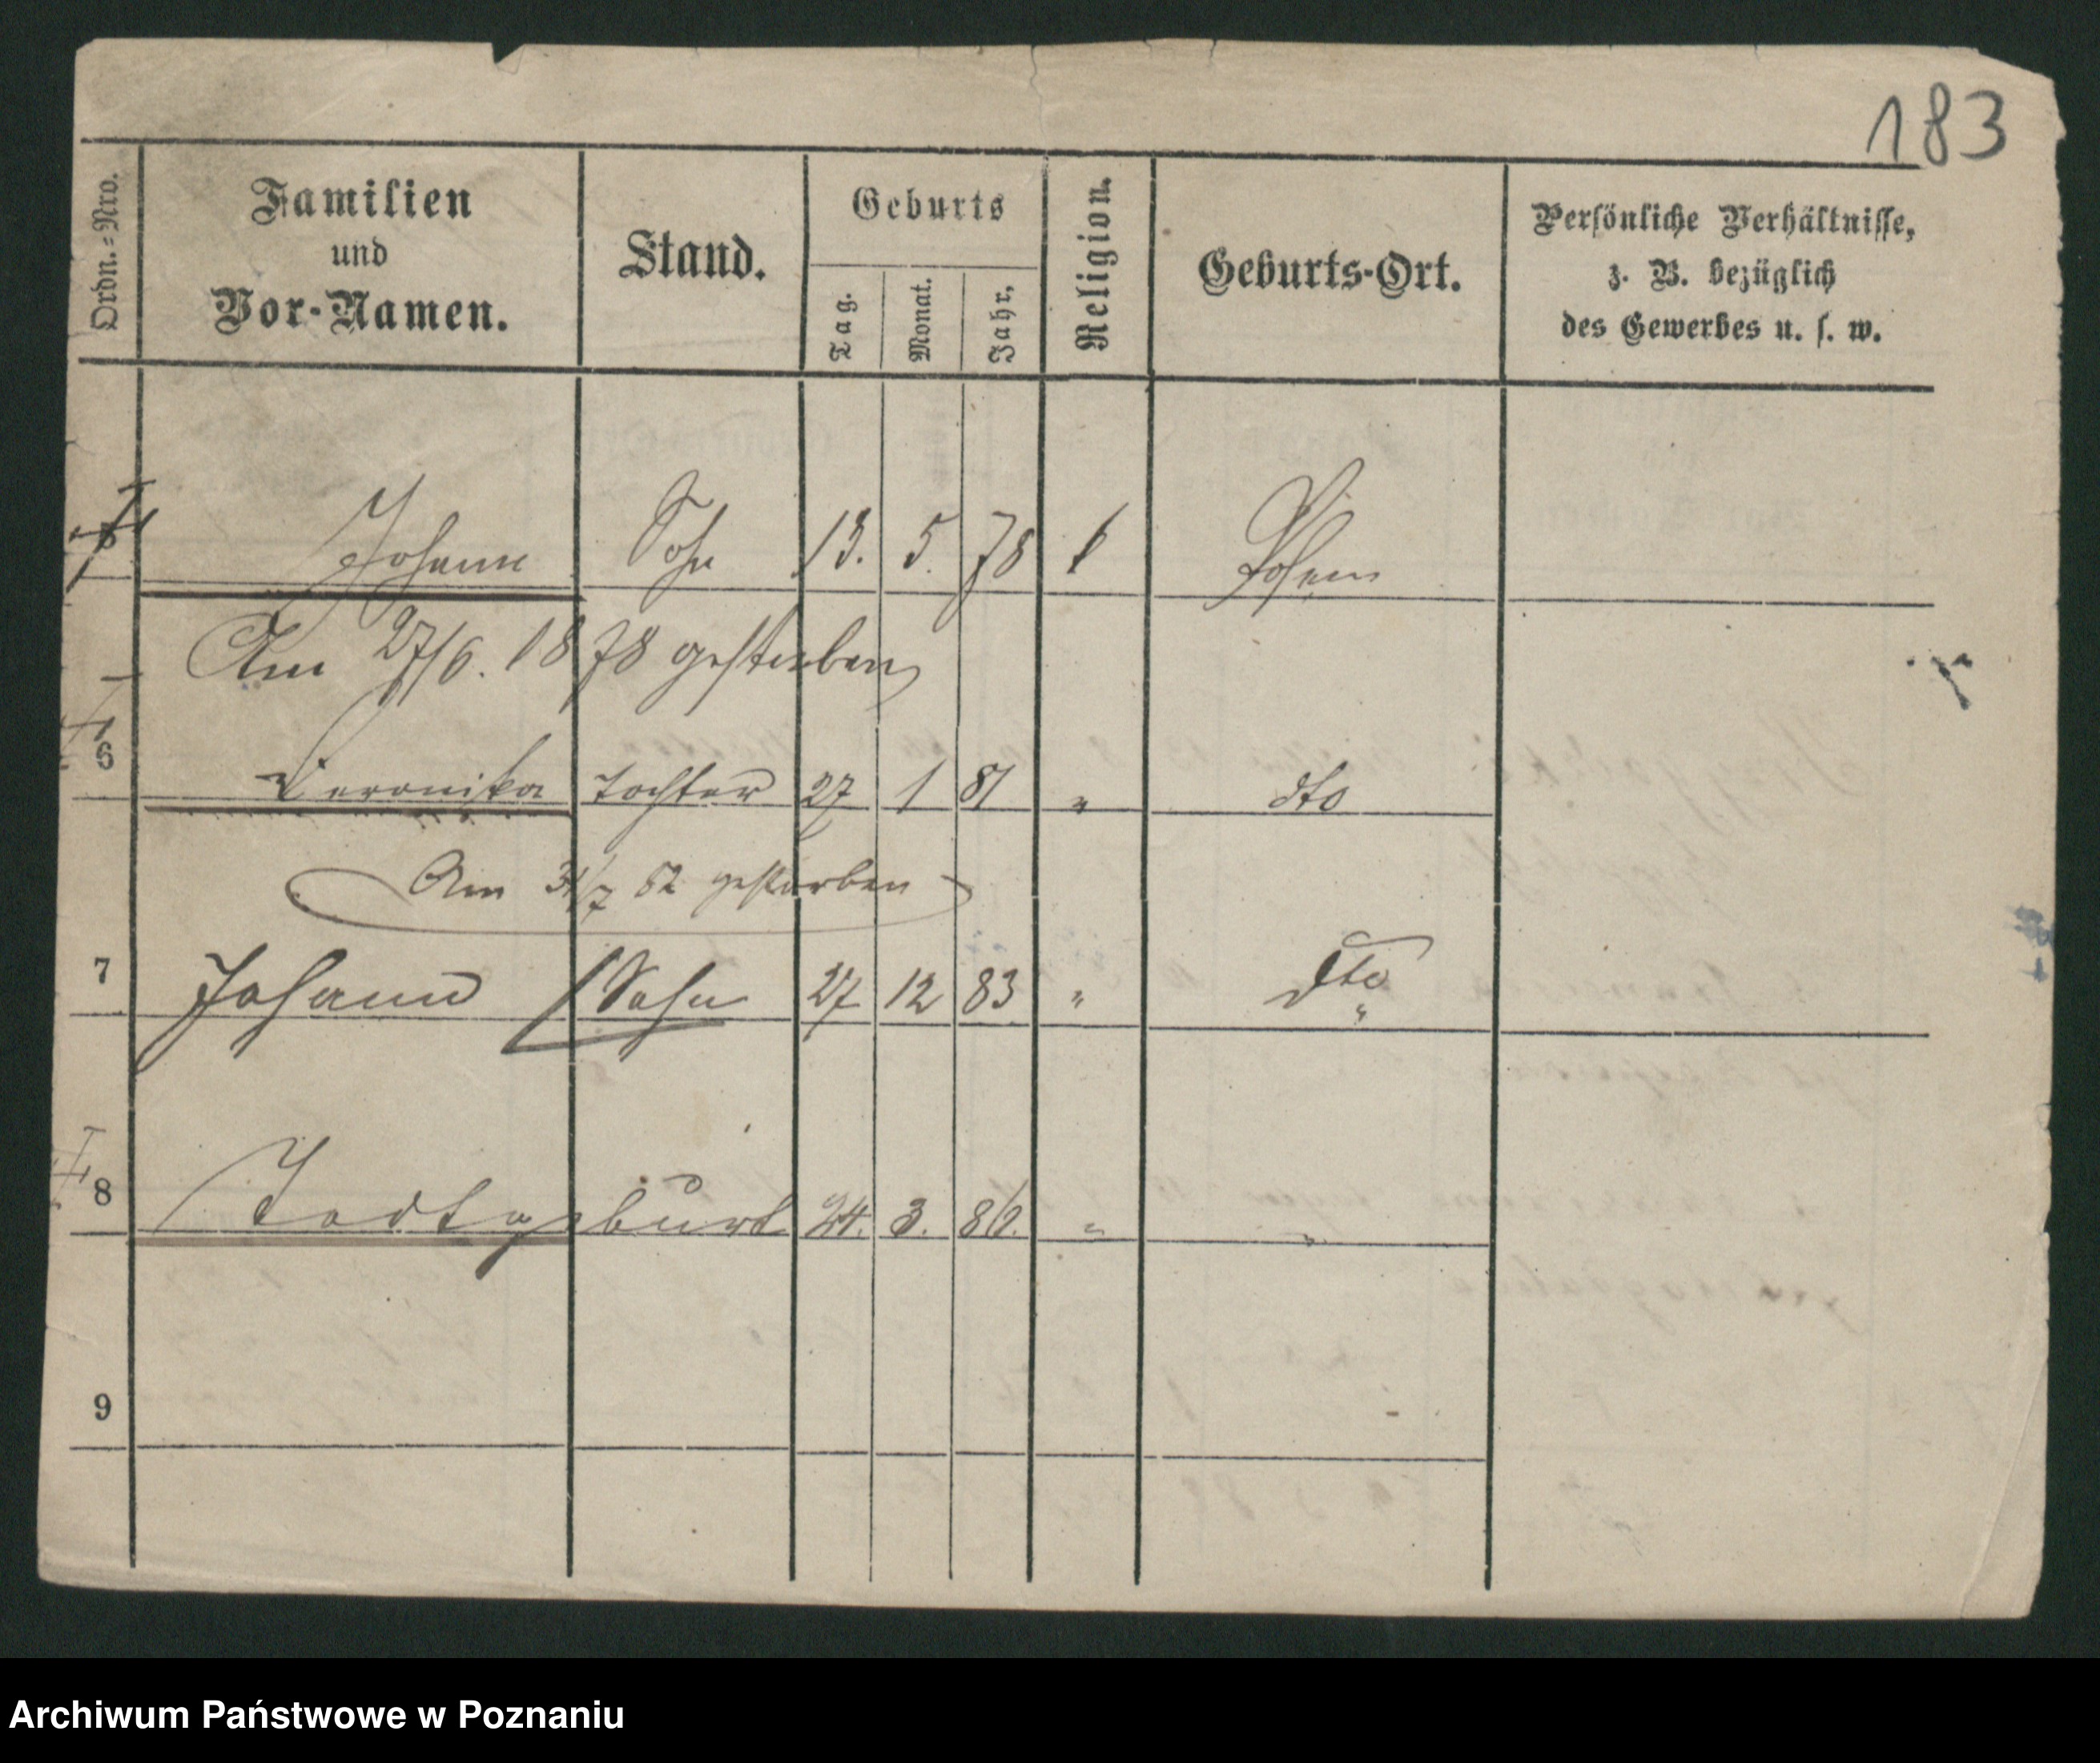 183
Ordn.=Nro.
Familien
und
Vor-Namen.
Stand.
Geburts
Tag.
Monat.
Jahr,
Religion.
Geburts-Ort.
Persönliche Verhältnisse,
z. B. bezüglich
des Gewerbes u. s. w.
Johann Sohn 13. 5. 78
Am 27/6. 1878 gestorben
6 Veronika Tochter 27 1 81 " dto
Am 31/7 82 gestorben
7 Johann Sohn 27 12 83 " dto
"
8 Todtgeburt 24. 3. 86. " "
9
Archiwum Państwowe w Poznaniu